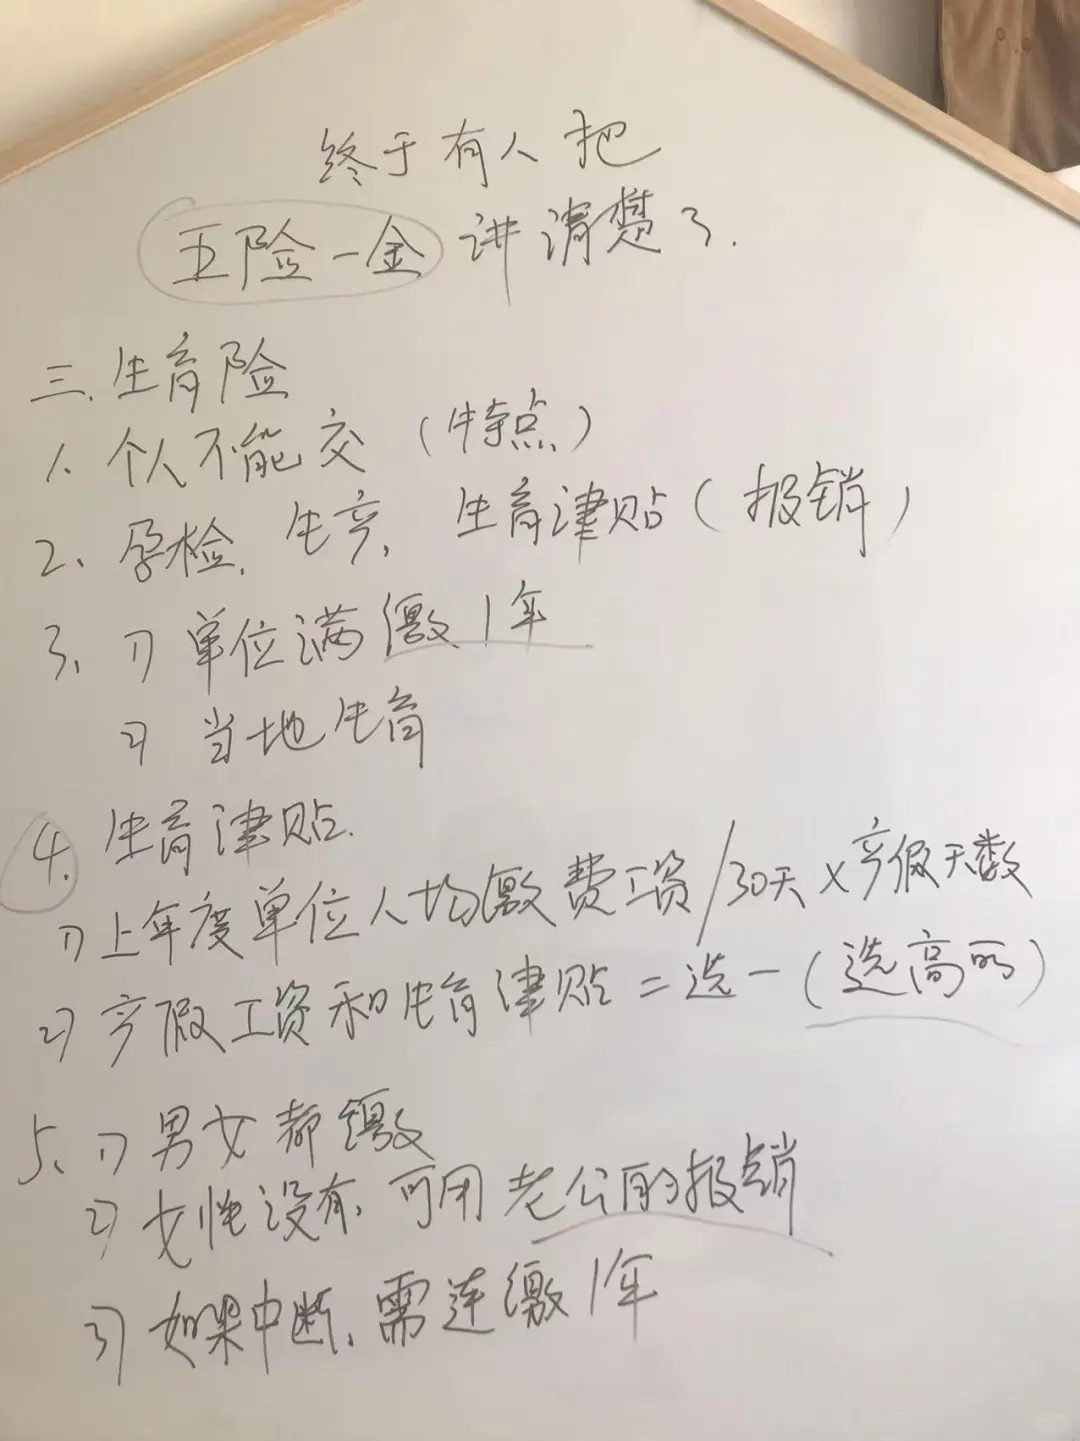 终于有人把
五险一金讲清楚了.
三.生育险
1.个人不能交(特点)
2、孕检.生产,生育津贴(报销)
3、1)单位满缴1年
2)当地生育
4.生育津贴.
1)上年度单位人均缴费工资/30天×产假天数
2)产假工资和生育津贴=选一(选高的)
5、1)男女都缴
2)女性没有,可用老公的报销
3)如果中断,需连缴1年